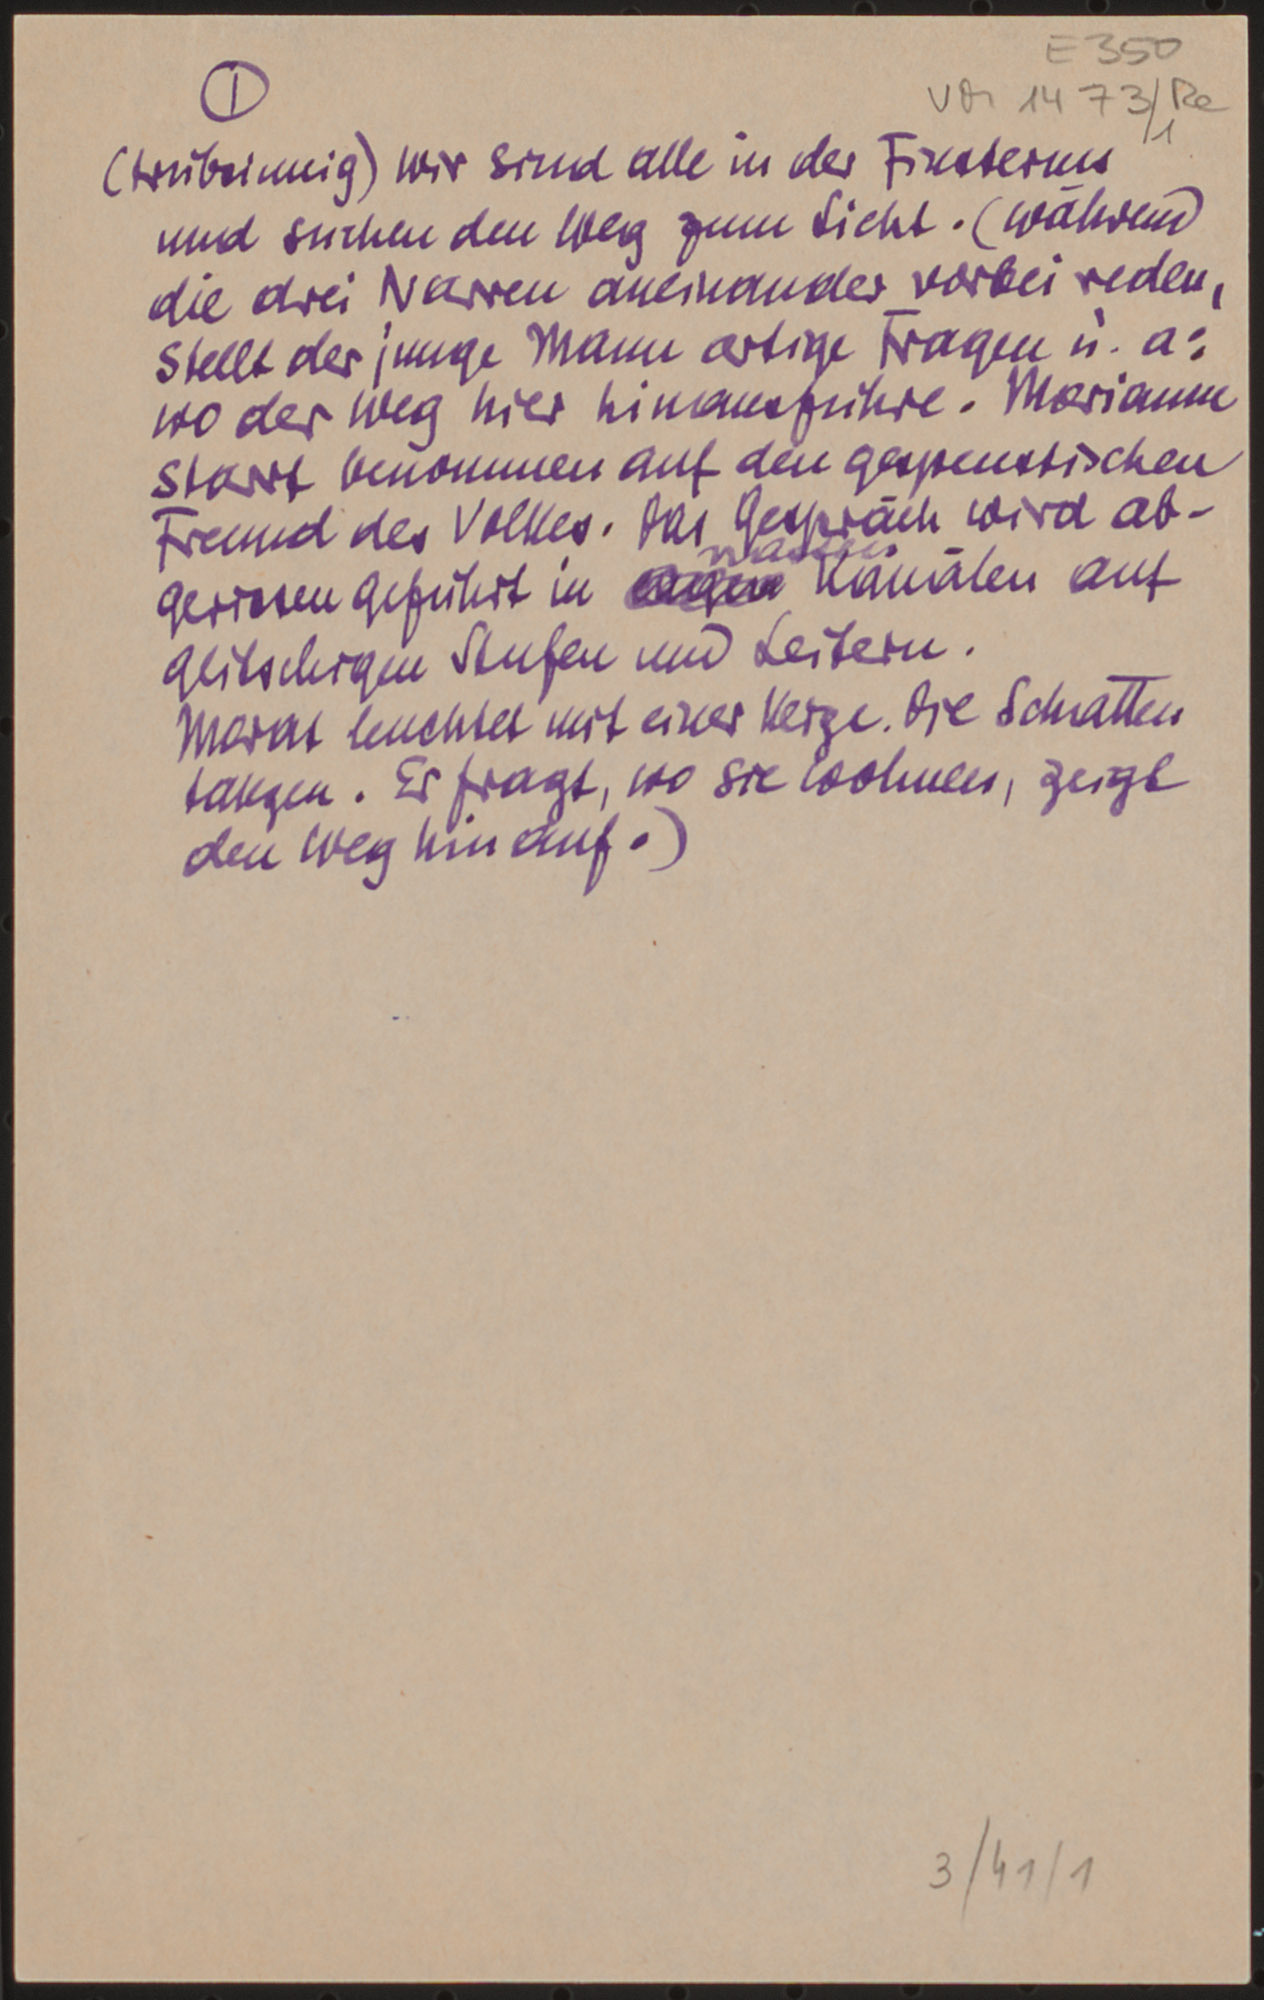 E 350
1473/Re
1
①
(trübsinnig) wir sind alle in der Finsternis
und suchen den Weg zum Licht. (während
die drei Narren aneinander vorbei reden,
stellt der junge Mann artige Fragen u. a:
wo der Weg hier hinausführe. Marianne
starrt benommen auf den gespenstischen
Freund des Volkes. Das Gespräch wird ab-
gerissen geführt in nassen Kanälen auf
glitschigen Stufen und Leitern.
Marat leuchtet mit einer Kerze. Die Schatten
tanzen. Er fragt, wo sie wohnen, zeigt
den Weg hinauf.)
3/41/1